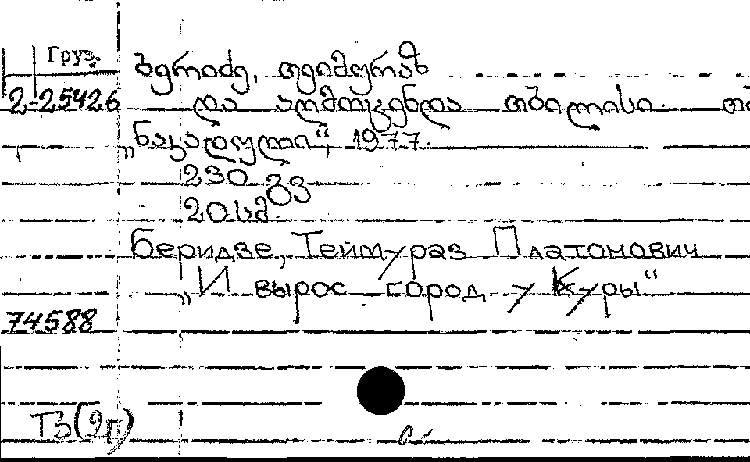 Груз.
ბერიძე, თეიმურაზ
2-25426 და აღმოცენდა თბილისი. თბ
„ნაკადული“, 1977.
230 გვ.
20 სმ.
Беридзе, Теймураз Платонович
„И вырос город у Куры“
74588
ТЗ(2Г)